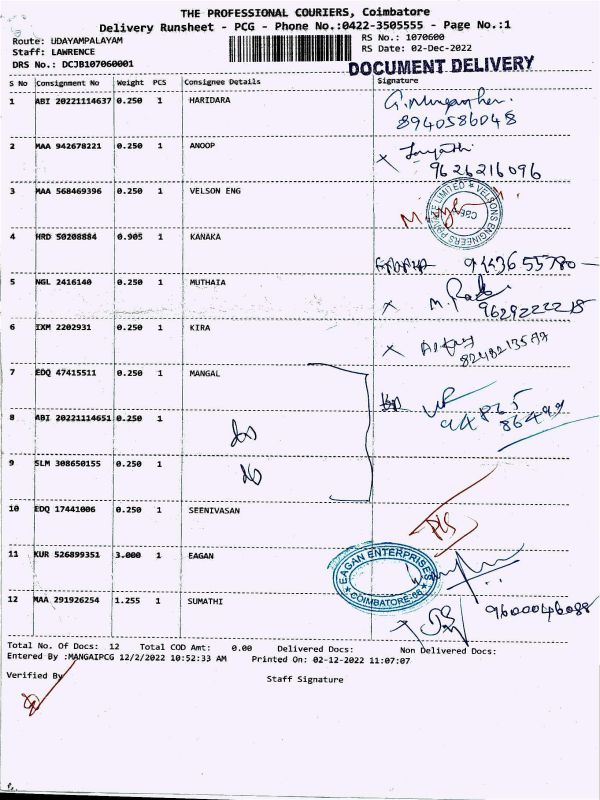 THE PROFESSIONAL COURIERS, Coimbatore
Delivery Runsheet - PCG - Phone No.:0422-3505555 - Page No.:1
Route: UDAYAMPALAYAM RS No.: 1070600
Staff: LAWRENCE RS Date: 02-Dec-2022
DRS No.: DCJB107060001 DOCUMENT DELIVERY
S No Consignment No Weight PCS Consignee Details Signature
1 ABI 20221114637 0.250 1 HARIDARA
8940586048
2 MAA 942678221 0.250 1 ANOOP
9626216096
3 MAA 568469396 0.250 1 VELSON ENG
VELSONS ENGINEERS PRIVATE LIMITED CBE
4 HRD 50208884 0.905 1 KANAKA
5 NGL 2416140 0.250 1 MUTHAIA
9629222218
6 IXM 2202931 0.250 1 KIRA
7 EDQ 47415511 0.250 1 MANGAL
8 ABI 20221114651 0.250 1
9 SLM 308650155 0.250 1
10 EDQ 17441006 0.250 1 SEENIVASAN
11 KUR 526899351 3.000 1 EAGAN
EAGAN ENTERPRISES
COIMBATORE-08
12 MAA 291926254 1.255 1 SUMATHI
9600046088
Total No. Of Docs: 12 Total COD Amt: 0.00 Delivered Docs: Non Delivered Docs:
Entered By :MANGAIPCG 12/2/2022 10:52:33 AM Printed On: 02-12-2022 11:07:07
Verified By Staff Signature